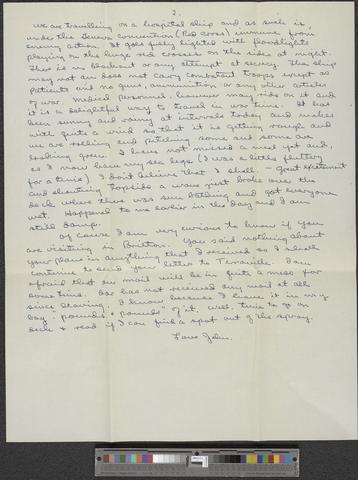 2.
We are travelling on a hospital ship and as such is
under the Geneva convention (Red Cross) immune from
enemy action. It goes fully lighted with floodlights
playing on the huge red crosses on the sides at night.
There is no blackout or any attempt at secrecy. The ship
may not and does not carry combatant troops except as
patients and no guns, ammunition or any other articles
of war. Medical personnel however may ride on it and
it is a delightful way to travel in war time. It has
been sunny and rainy at intervals today and makes
with quite a wind so that it is getting rough and
we are rolling and pitching some and some are
looking green. I have not missed a meal yet and,
as I now have my sea legs (I was a little fluttery
for a time) I don't believe that I shall. - great excitement
and shouting topside a wave just broke over the
deck where there was sun bathing and got everyone
wet. Happened to me earlier in the day and I am
still damp.
Of course I am very curious to know if you
are visiting in Britton. You said nothing about
your plans in anything that I received so I shall
continue to send your letters to Evansville. I am
afraid that our mail will be in quite a mess for
sometime. Gar has not received any mail at all
since leaving. I know because I have it in my
bag "pounds & pounds" of it. Well, time to go on
deck & read if I can find a spot out of the spray.
Love John.